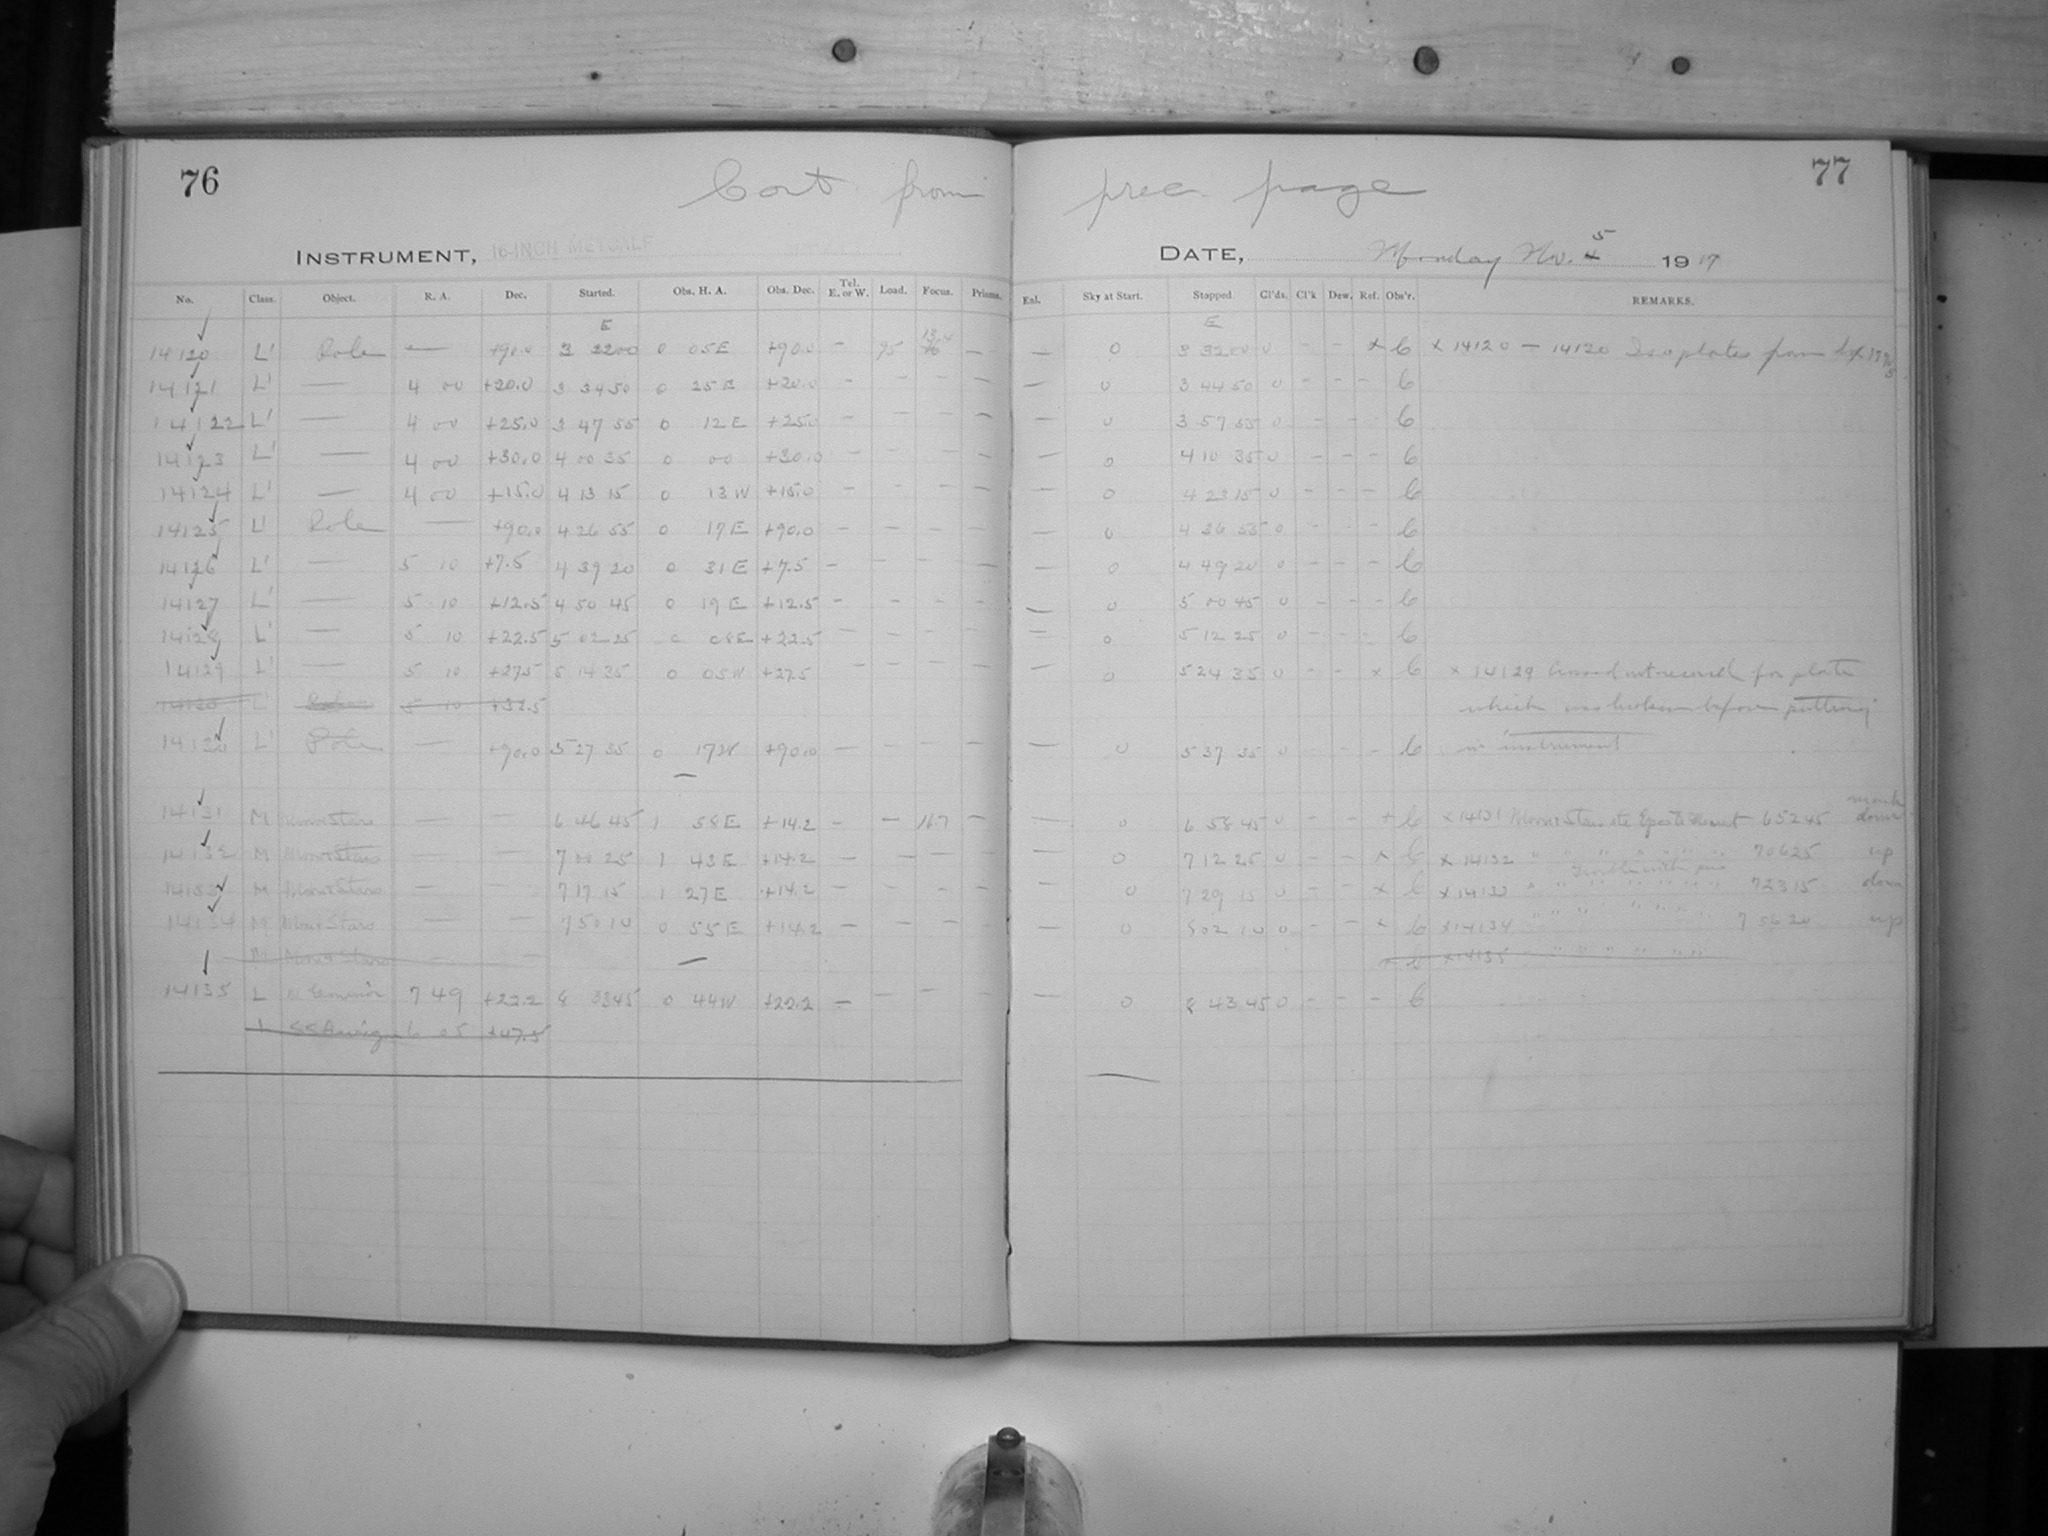 76
Cont from prec. page
77
INSTRUMENT, 16-INCH METCALF
DATE, Monday Nov. 5 1917
No. Class. Object. R. A. Dec. Started. Obs. H. A. Obs. Dec. Tel. E. or W. Load. Focus. Prisms. Enl. Sky at Start. Stopped. Cl'ds. Cl'k Dew. Ref. Obs'r. REMARKS.
E E
14120 L' Pole — +90.0 3 22 00 0 05 E +90.0 — 95 13.4 — — 0 3 32 00 0 — — x C x 14120 — 14130 Iso plates from
14121 L' — 4 00 +20.0 3 34 50 0 25 E +20.0 — — — — — 0 3 44 50 0 — — — C
14122 L' — 4 00 +25.0 3 47 55 0 12 E +25.0 — — — — — 0 3 57 55 0 — — — C
14123 L' — 4 00 +30.0 4 00 35 0 00 +30.0 — — — — — 0 4 10 35 0 — — — C
14124 L' — 4 00 +15.0 4 13 15 0 13 W +15.0 — — — — — 0 4 23 15 0 — — — C
14125 L' Pole — +90.0 4 26 55 0 17 E +90.0 — — — — — 0 4 36 55 0 — — — C
14126 L' — 5 10 +7.5 4 39 20 0 31 E +7.5 — — — — — 0 4 49 20 0 — — — C
14127 L' — 5 10 +12.5 4 50 45 0 19 E +12.5 — — — — — 0 5 00 45 0 — — — C
14128 L' — 5 10 +22.5 5 02 25 0 08 E +22.5 — — — — — 0 5 12 25 0 — — — C
14129 L' — 5 10 +27.5 5 14 35 0 05 W +27.5 — — — — — 0 5 24 35 0 — — x C x 14129 for plate
14130 L' Pole 5 10 +32.5 which was broken before putting
14130 L' Pole — +90.0 5 27 35 0 17 W +90.0 — — — — — 0 5 37 35 0 — — — C in instrument
14131 M Moon+Stars — — 6 46 45 1 58 E +14.2 — — 16.7 — — 0 6 58 45 0 — — + C x 14131 Moon+Stars 6 52 45 down
14132 M Moon+Stars — — 7 00 25 1 43 E +14.2 — — — — — 0 7 12 25 0 — — x C x 14132 " " " " " " 7 06 25 up
14133 M Moon+Stars — — 7 17 15 1 27 E +14.2 — — — — — 0 7 29 15 0 — — x C x 14133 " " " " " " 7 23 15 down
14134 M Moon+Stars — — 7 50 10 0 55 E +14.2 — — — — — 0 8 02 10 0 — — x C x 14134 " " " " " " 7 56 20 up
M Moon+Stars — — x C x 14135 " " " " " "
14135 L 7 49 +22.2 8 33 45 0 44 W +22.2 — — — — — 0 8 43 45 0 — — — C
L SS Aurigae 6 05 +47.5